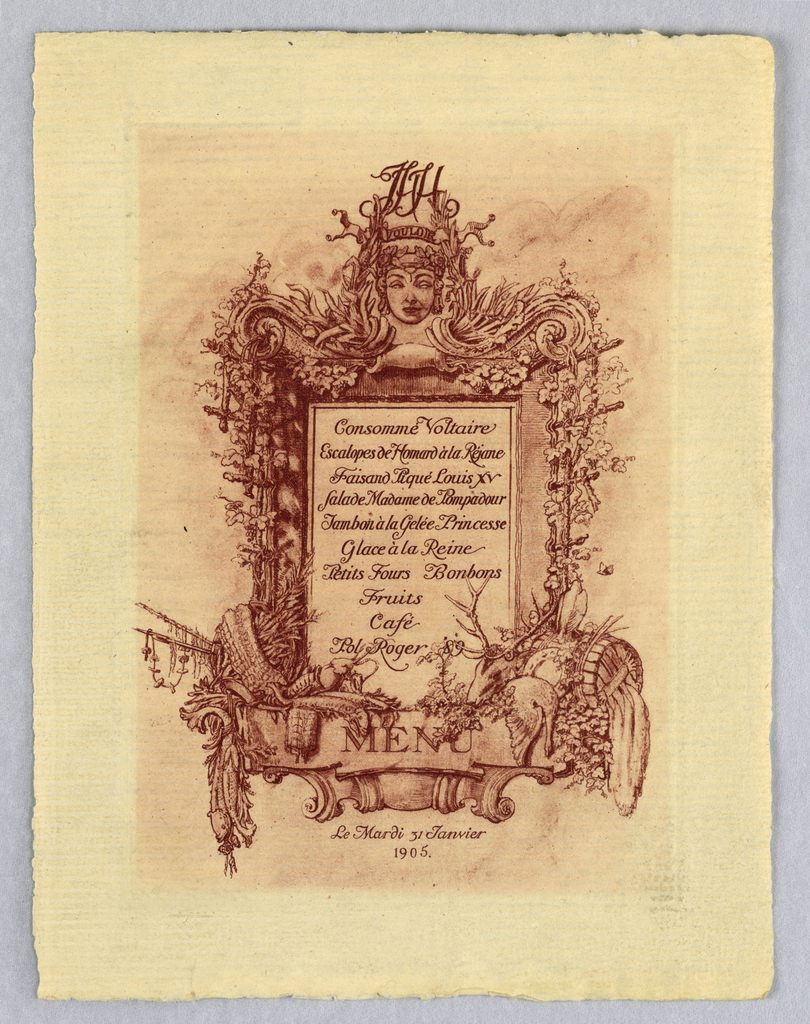 JHH
VOULOIR
Consommé Voltaire
Escalopes de Homard à la Réjane
Faisand Piqué Louis XV
Salade Madame de Pompadour
Jambon à la Gelée Princesse
Glace à la Reine
Petits Fours Bonbons
Fruits
Café
Pol Roger 89
MENU
Le Mardi 31 Janvier
1905.